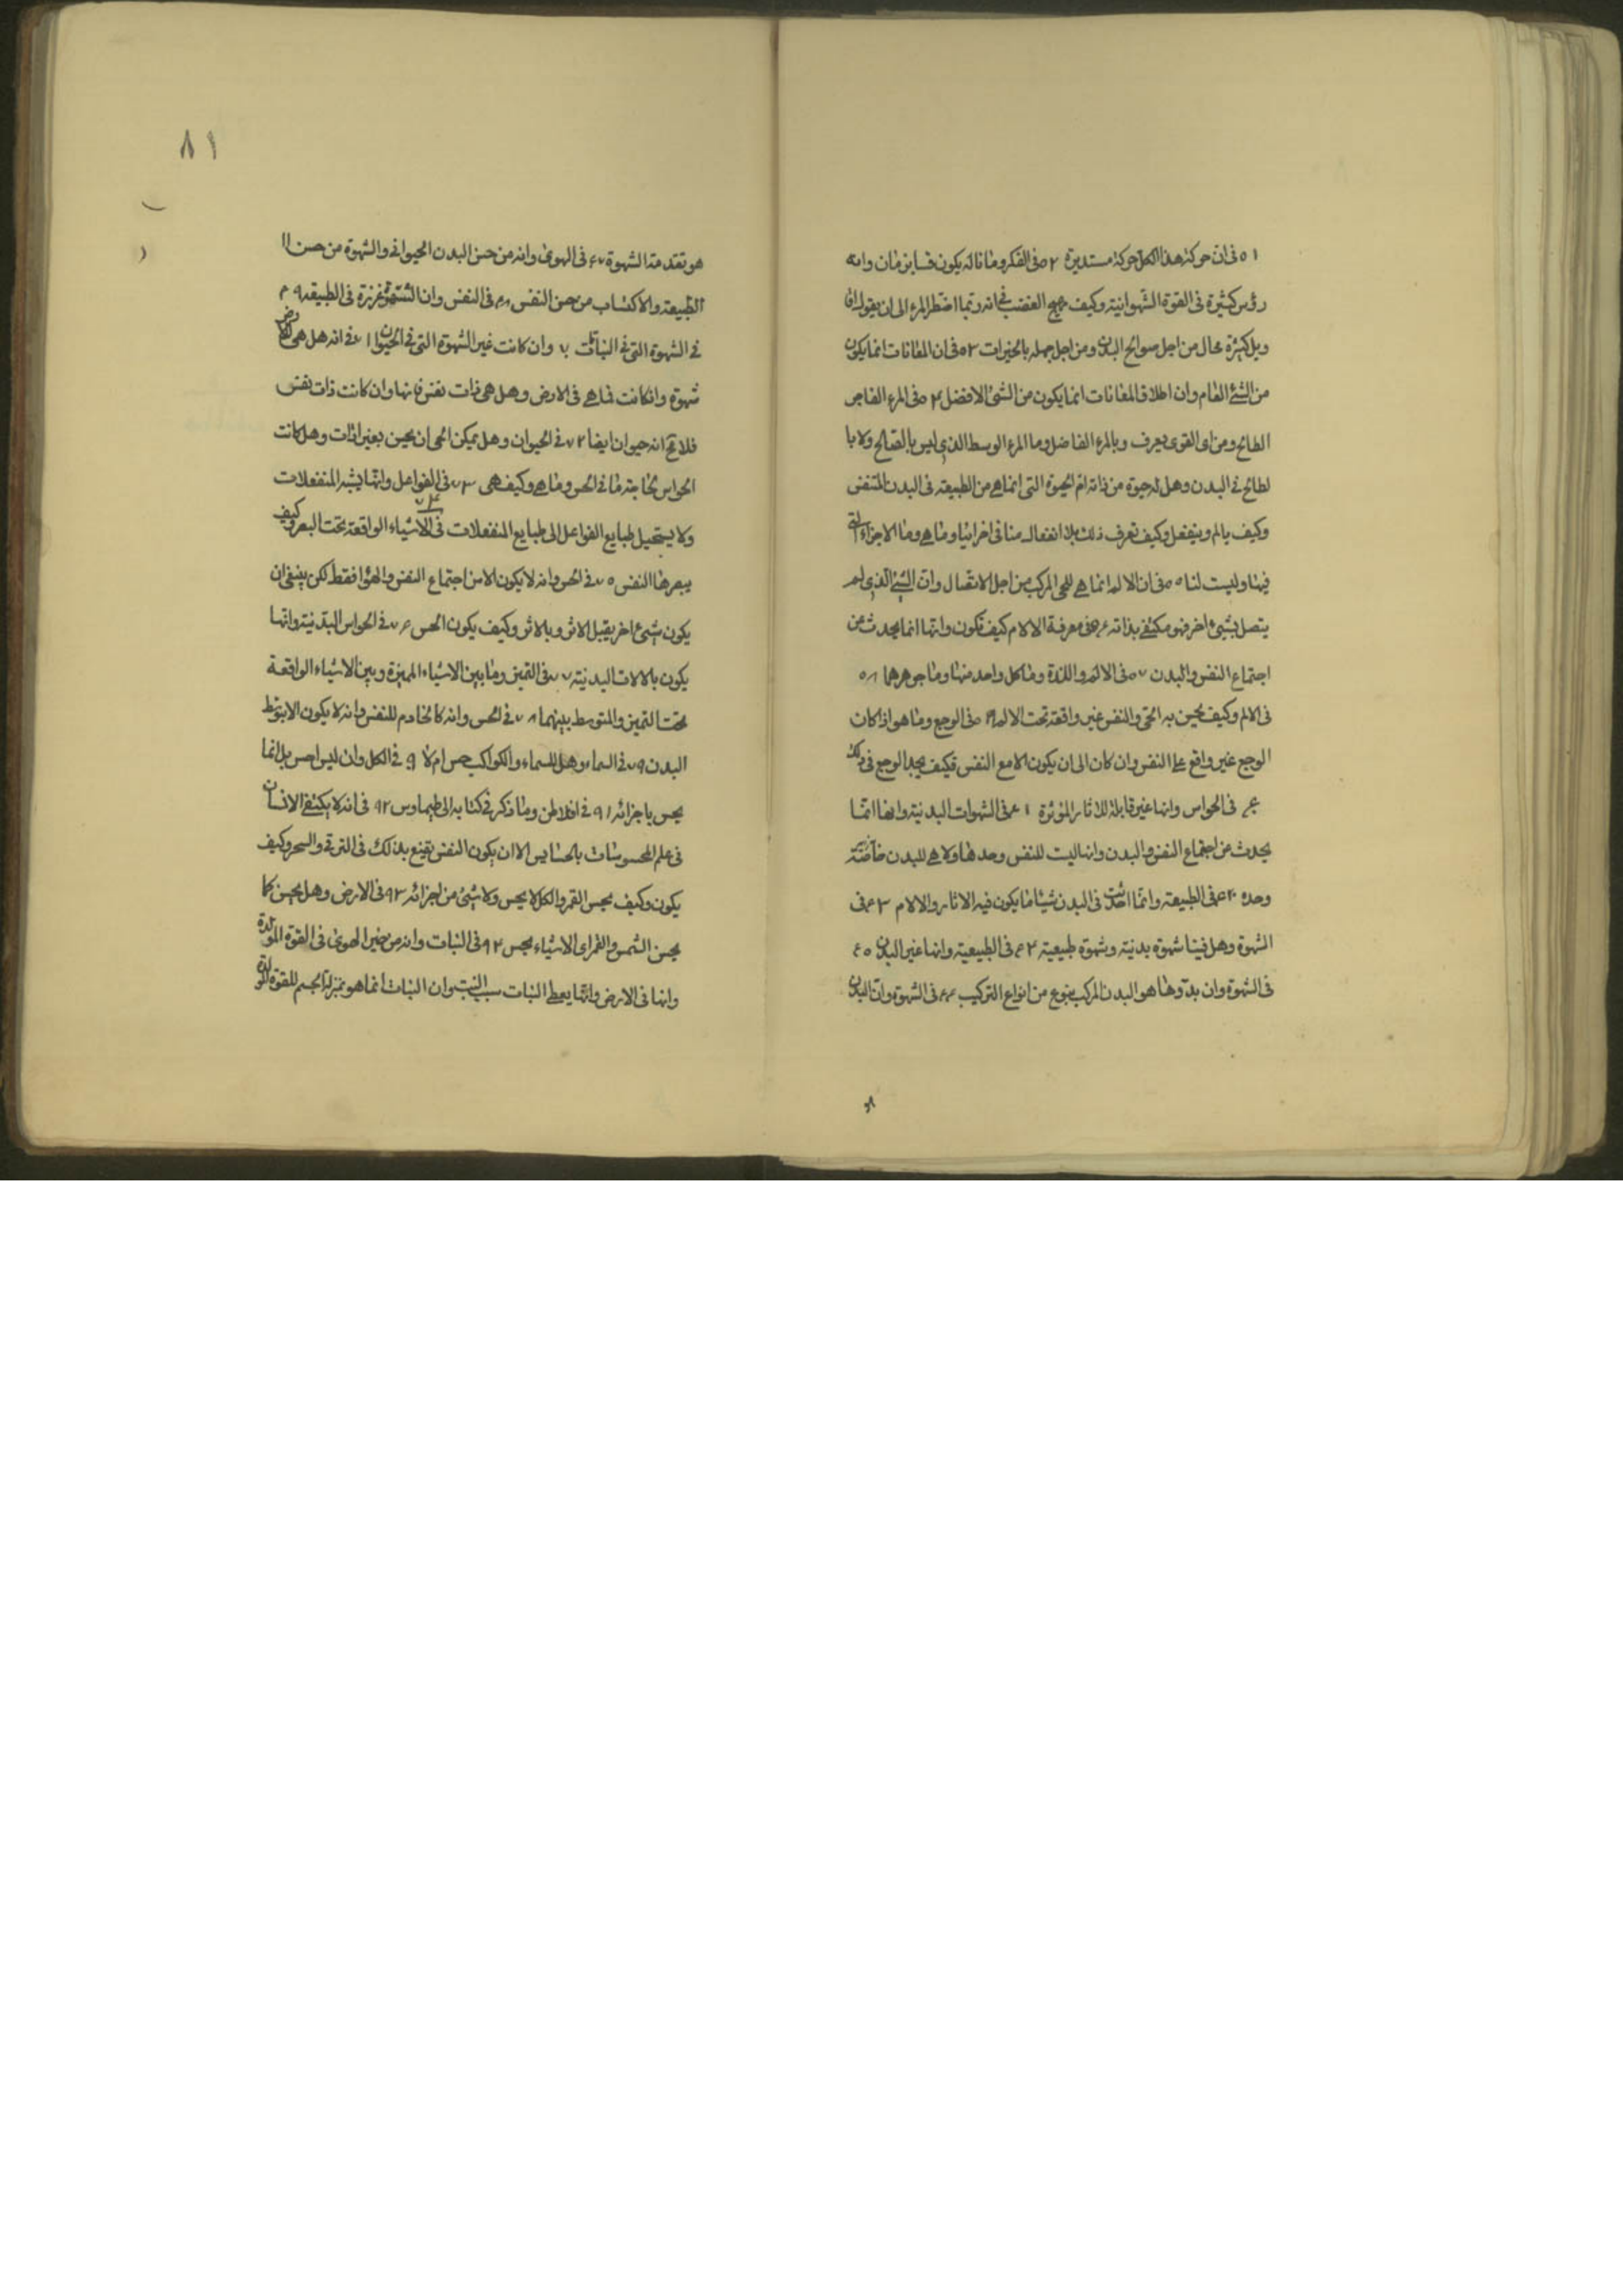 ٥١ فى ان حركة هذا الكل حركة مستديرة ٥٢ فى الفكر وما باله يكون فينا بزمان وانه
رؤس كثيرة فى القوة الشهوانية وكيف يهيج الغضب فى انه ربما اضطر المرء الى ان يقول
ويل كثيرة محال من اجل سوانح البدن ومن اجل جهله بالخيرات ٥٣ فى ان المغانات انما يكون
من الشئ العام وان اطلاق المغانات انما يكون من الشئ الافضل ٥٤ فى المرء الفاجر
الطالح ومن اى القوى يعرف وبالمرء الفاضل وما المرء الوسط الذى ليس بالصالح ولا با
لطالح فى البدن وهل له حيوة من ذاته ام الحيوة التى انما هى من الطبيعة فى البدن المتنفس
وكيف يالم وينفعل وكيف نعرف ذلك بلا انفعال منا فى اجزائنا وما هى وما الاجزاء التى
فينا وليست لنا ٥٥ فى ان الالم انما هى للحى المركب من اجل الاتصال وان الشئ الذى لم
يتصل بشئ اخر فهو مكتف بذاته ٥٦ فى معرفة الالام كيف تكون وانها انما يحدث من
اجتماع النفس والبدن ٥٧ فى الالم واللذة وما كل واحد منها وما جوهرها ٥٨
فى الالم وكيف يحس به الحى والنفس غير واقعة تحت الالم ٥٩ فى الوجع وما هو اذا كان
الوجع غير واقع على النفس وان كان الى ان يكون الا مع النفس فكيف يجد الوجع فى ذلك
٦٠ فى الحواس وانها غير قابلة للاثار المؤثرة ٦١ فى الشهوات البدنية وانها انما
يحدث من اجتماع النفس والبدن وانها ليست للنفس وحدها ولا هى للبدن خاصته
وحده ٦٢ فى الطبيعة وانها احدثت فى البدن شيئا ما يكون فيه الاثار والالام ٦٣ فى
الشهوة وهل فينا شهوة بدنية وشهوة طبيعية ٦٤ فى الطبيعية وانها غير البدن ٦٥
فى الشهوة وان بدوها هو البدن المركب بنوع من انواع التركيب ٦٦ فى الشهوة وان البدن
٨١
هو تقدمة الشهوة ٦٧ فى الهوى وانه من حس البدن الحيوانى والشهوة من حس ال
الطبيعة والاكتساب من حس النفس ٦٨ فى النفس وان الشهوة غريزة فى الطبيعة ٦٩
فى الشهوة التى فى النبات ٧٠ وان كانت غير الشهوة التى فى الحيوان ٧١ فى انه هل هى للارض
شهوة وان كانت فما هى فى الارض وهل هى ذات نفس فانها وان كانت ذات نفس
فلا مح انه حيوان ايضا ٧٢ فى الحيوان وهل يمكن الحى ان يحس بغير اداة وهل كانت
الحواس لحاجة ما فى الحس وما هى وكيف هى ٧٣ فى الفواعل وانها يشبه المنفعلات
ولا يستحيل طبايع الفواعل الى طبايع المنفعلات ٧٤ فى الاشياء الواقعة تحت البصر وكيف
يبصرها النفس ٧٥ فى الحس وانه لا يكون الا من اجتماع النفس والهواء فقط لكن ينبغى ان
يكون شئ اخر يقبل الاثر وبالاثر وكيف يكون الحس ٧٦ فى الحواس البدنية وانها
يكون بالالات البدنية ٧٧ فى التميز وما بين الاشياء المميزة وبين الاشياء الواقعة
تحت التميز والمتوسط بينهما ٧٨ فى الحس وانه كالخادم للنفس وانه لا يكون الا بتوسط
البدن ٧٩ فى السماء وهل للسماء والكواكب حس ام لا ٩٠ فى الكل وان ليس احس بل انما
يحس باجزائه ٩١ فى افلاطن وما ذكر فى كتابه الى طيماوس ٩٢ فى انه لا يكتفى الانسان
فى علم المحسوسات بالحسايس الا ان يكون النفس يقنع بذلك فى الترقى والسحر وكيف
يكون وكيف يحس القمر والكل لا يحس ولا شئ من اجزائه ٩٣ فى الارض وهل يحس كما
يحس الشمس والقمر اى الاشياء يحس ٩٤ فى النبات وانه من حيز الهوى فى القوة المولدة
وانها فى الارض وانها يعطى النبات سبب النبت وان النبات انما هو بمنزلة الجسم للقوة المولدة